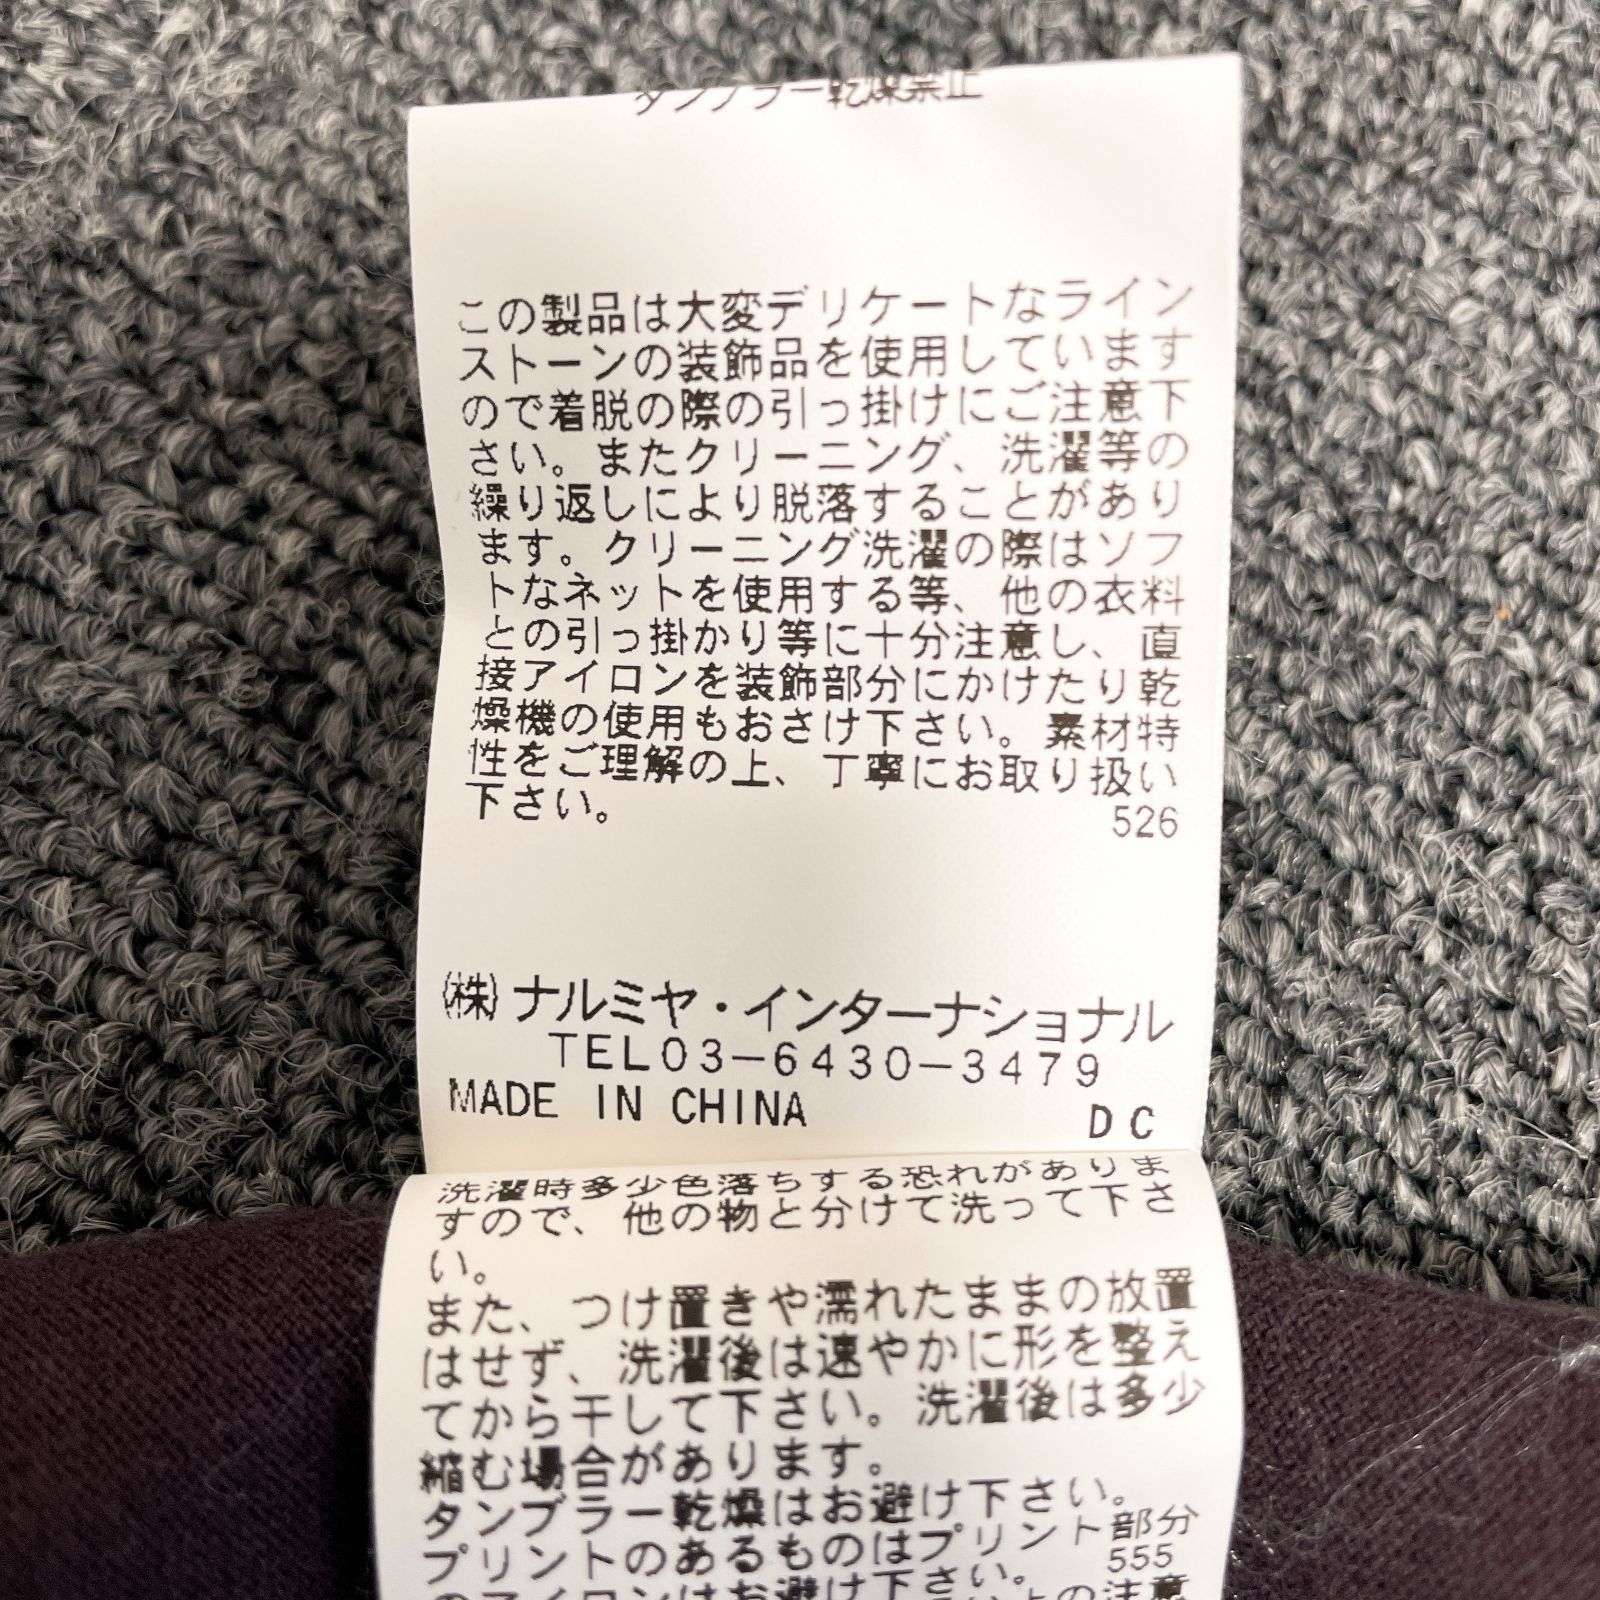 タンブラー乾燥禁止
この製品は大変デリケートなライン
ストーンの装飾品を使用しています
ので着脱の際の引っ掛けにご注意下
さい。またクリーニング、洗濯等の
繰り返しにより脱落することがあり
ます。クリーニング洗濯の際はソフ
トなネットを使用する等、他の衣料
との引っ掛かり等に十分注意し、直
接アイロンを装飾部分にかけたり乾
燥機の使用もおさけ下さい。素材特
性をご理解の上、丁寧にお取り扱い
下さい。
526
㈱ナルミヤ・インターナショナル
TEL03-6430-3479
MADE IN CHINA
DC
洗濯時多少色落ちする恐れがありま
すので、他の物と分けて洗って下さ
い。
また、つけ置きや濡れたままの放置
はせず、洗濯後は速やかに形を整え
てから干して下さい。洗濯後は多少
縮む場合があります。
タンブラー乾燥はお避け下さい。
プリントのあるものはプリント部分
のアイロンはお避け下さい。
555
の注意